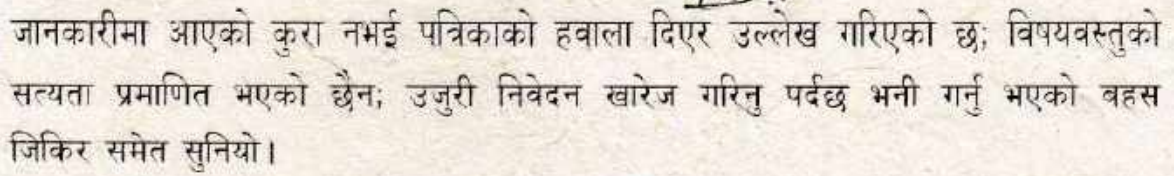 जानकारीमा आएको कुरा नभई पत्रिकाको हवाला दिएर उल्लेख गरिएको छ; विषयवस्तुको
सत्यता प्रमाणित भएको छैन; उजुरी निवेदन खारेज गरिनु पर्दछ भनी गर्नु भएको बहस
जिकिर समेत सुनियो।